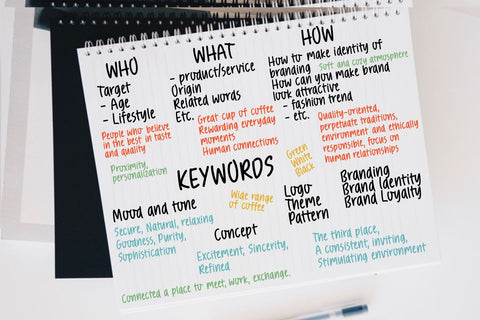 WHO
Target
- Age
- Lifestyle
People who believe
in the best in taste
and quality
Proximity,
personalization
WHAT
- product/service
Origin
Related words
Etc.
Great cup of coffee
Rewarding everyday
moments
Human connections
HOW
How to make identity of
branding
Soft and cozy atmosphere
How can you make brand
look attractive
- fashion trend
- etc.
Quality-oriented,
perpetuate traditions,
environment and ethically
responsible, focus on
human relationships
KEYWORDS
Green
White
Back
Wide range
of coffee
Mood and tone
Secure, Natural, relaxing
Goodness, Purity,
Sophistication
Concept
Excitement, Sincerity,
Refined
Logo
Theme
Pattern
Branding
Brand Identity
Brand Loyalty
The third place,
A consistent, inviting,
Stimulating environment
Connected a place to meet, work, exchange.